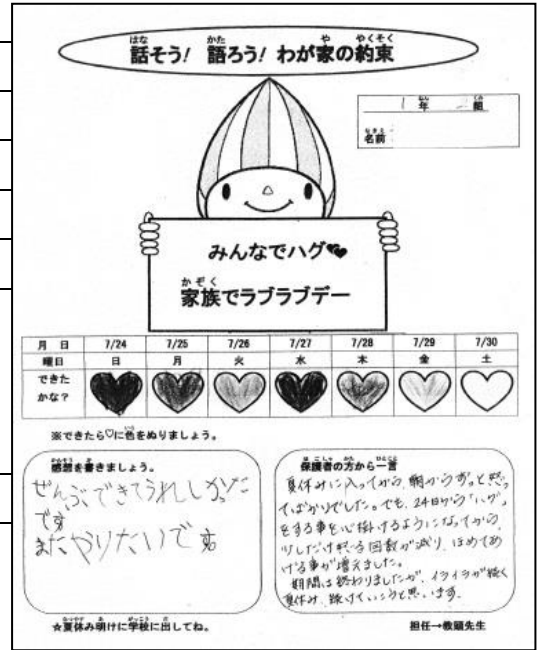 話そう! 語ろう! わが家の約束
1年 組
名前
みんなでハグ
家族でラブラブデー
月 日 7/24 7/25 7/26 7/27 7/28 7/29 7/30
曜日 日 月 火 水 木 金 土
できた
かな?
※できたら♡に色をぬりましょう。
感想を書きましょう。
ぜんぶできてうれしかった
です
またやりたいです
保護者の方から一言
夏休みに入ってから、朝からずっと怒っ
てばかりでした。でも、24日から「ハグ」
をする事を心掛けるようになってから、
少しだけ怒る回数が減り、ほめてあ
げる事が増えました。
期間は終わりましたが、イライラが続く
夏休み、続けていこうと思います。
★夏休み明けに学校に出してね。
担任→教頭先生